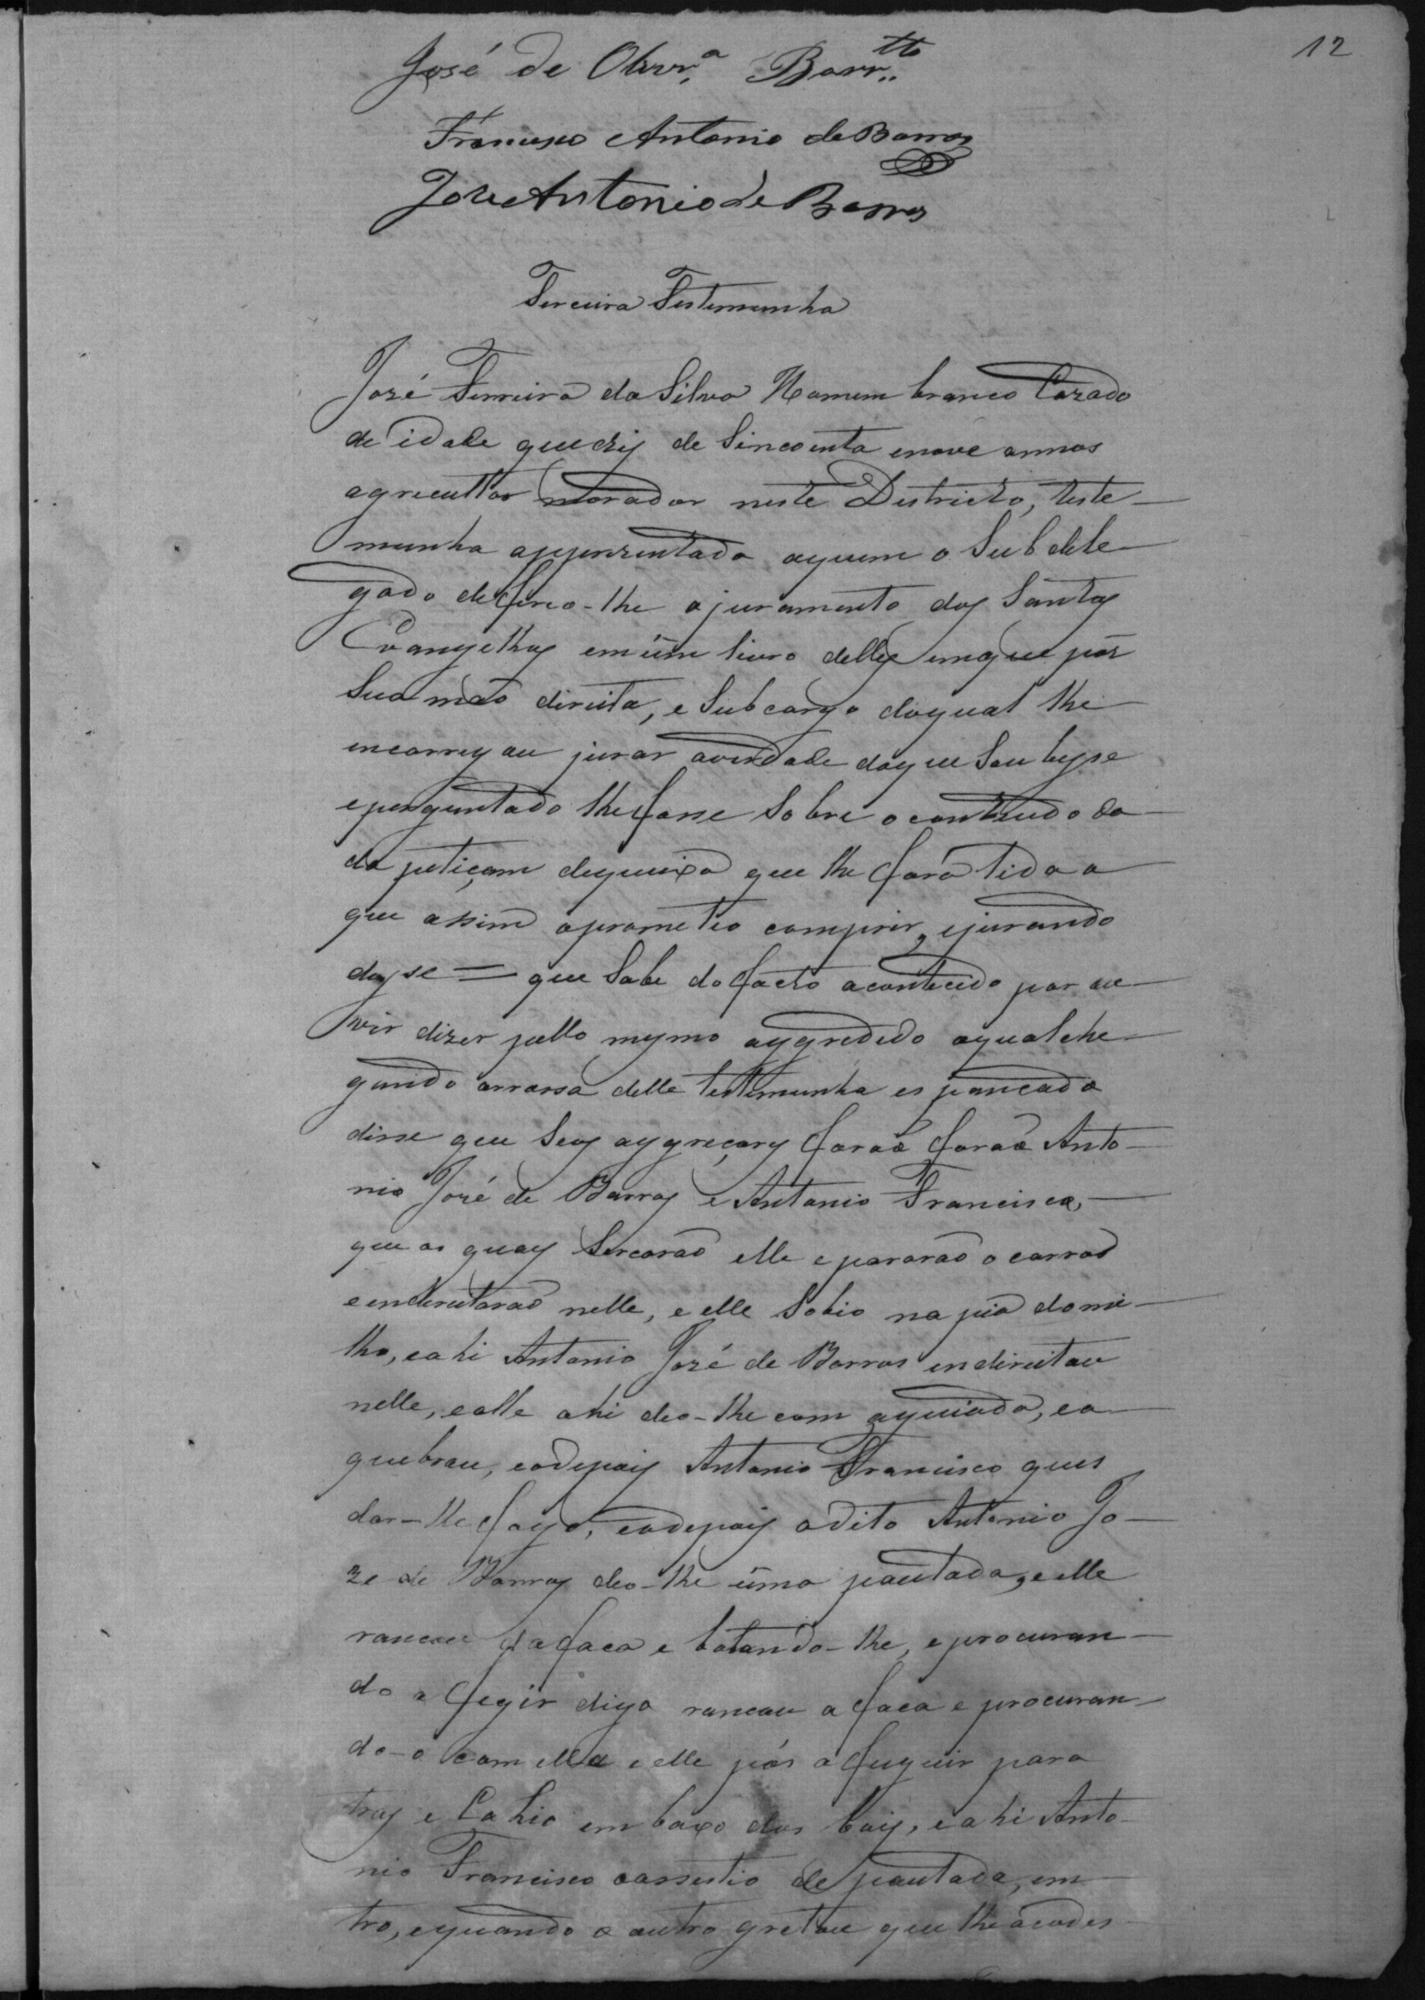 12
José de Olivr.ª Barr.tto
Francisco Antonio de Barros
Jose Antonio de Barros
Terceira Testemunha
José Ferreira da Silva Homem branco Cazado
de idade que diz de Sincoenta enove annos
agricultor morador neste Districto, teste-
munha apprezentada aquem o Subdele-
gado deferio-lhe ojuramento dos Santos
Evangelhos em üm livro delles emque pôs
Sua mão direita, e Subcargo doqual lhe
encarregou jurar averdade doque Soubesse
eperguntado lhe fosse Sobre ocontheudo da
da petiçam dequeixa que lhe fora lida a
que assim oprometeo comprir, ejurando
disse = que Sabe do facto acontecido por ou-
vir dizer pello mesmo aggredido oqual che-
gando arrassa delle testemunha espancado
disse que Seos aggreçores forão forão Anto-
nio José de Barros e Antonio Francisco,
que os quaes Sercarão elle epararão o carro
eendireitarão nelle, e elle Sobio na pia domi-
lho, eahi Antonio José de Barros endireitou
nelle, eelle ahi deo-lhe com aguiada, ea
quebrou, eodepois Antonio Francisco quis
dar-lhe fogo, eodepois odito Antonio Jo-
ze de Barros deo-lhe üma pautada, e elle
rancou da faca e botando-lhe, eprocuran-
do a fegir digo rancou a faca e procuran-
do-o com ella e elle pôs a fuguir para
tras e Cahio embaxo dos bois, eahi Anto-
nio Francisco oassestio de pautada, em
tro, equando o outro gretou que lhe acodes-